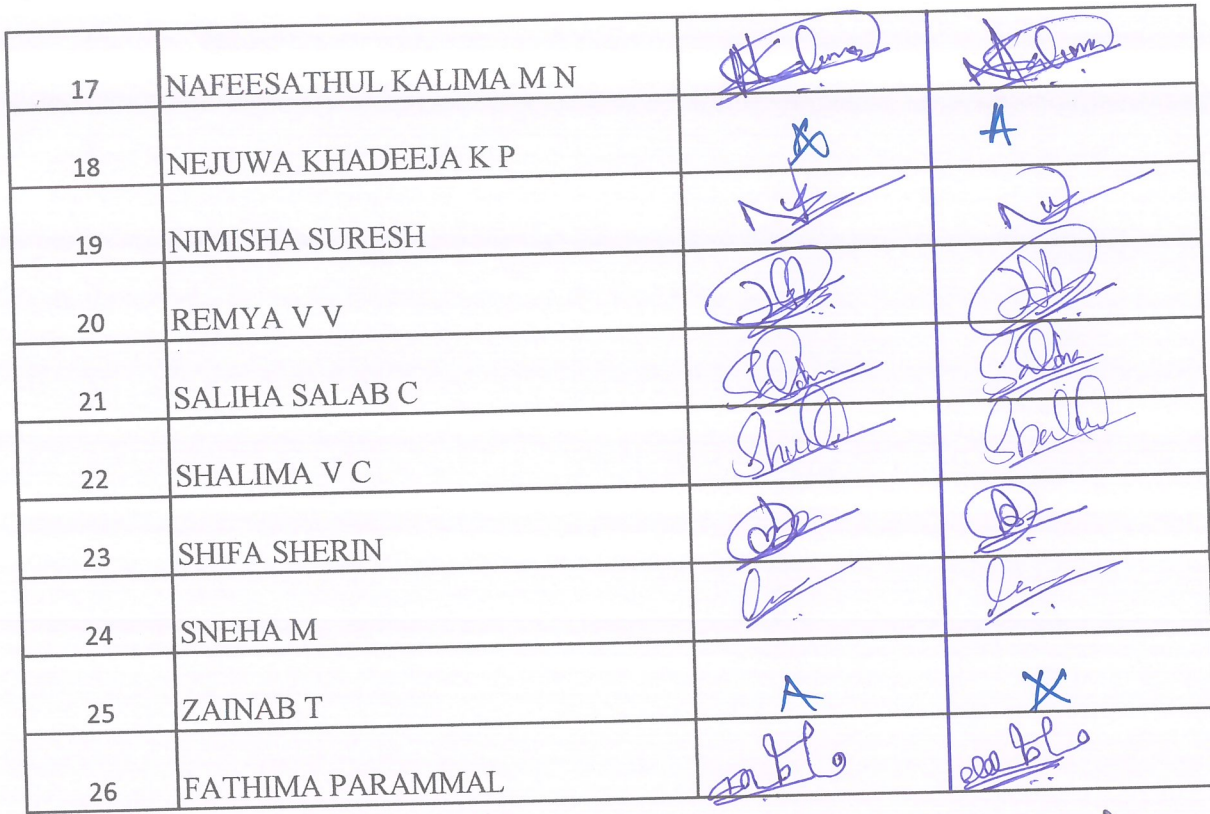 17 NAFEESATHUL KALIMA M N Kalima Kalima
18 NEJUWA KHADEEJA K P A A
19 NIMISHA SURESH
20 REMYA V V
21 SALIHA SALAB C Saliha Saliha
22 SHALIMA V C
23 SHIFA SHERIN
24 SNEHA M
25 ZAINAB T A A
26 FATHIMA PARAMMAL